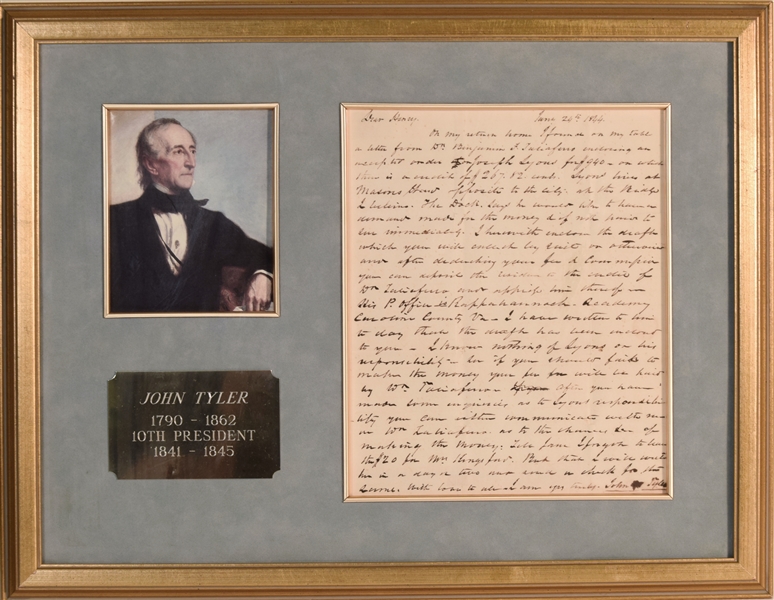 JOHN TYLER
1790 - 1862
10TH PRESIDENT
1841 - 1845
Dear Henry. June 26th
On my return home I found on my table
a letter from Dr. Benjamin F. Taliaferro enclosing an
under Joseph Lyons for - on which
there is a credit of $207.82 cents. Lyons lives at
opposite to the city. at the Bridge
The Doct. says he would like to have a
demand made for the money & if not paid to
sue immediately. I herewith enclose the draft
which you will collect by suit or otherwise
and after deducting your fee & commission
you can deposit the residue to the credit of
Dr Taliaferro and apprise him thereof -
His P. Office is Rappahannock Academy
Caroline County Va - I have written to him
to day that the draft has been enclosed
to you - I know nothing of Lyons or his
responsibility - but if you should fail to
make the money your fee will be paid
by Dr. Taliaferro. After you have
made some enquiries as to Lyons responsibi-
lity you can either communicate with me
or Dr Taliaferro as to the chances &c of
making the money. Tell Jane I forgot to leave
the $20 for Mrs. . But that I will write
her in a day or two and send a check for the
same. With love to all - I am yrs truly. John Tyler